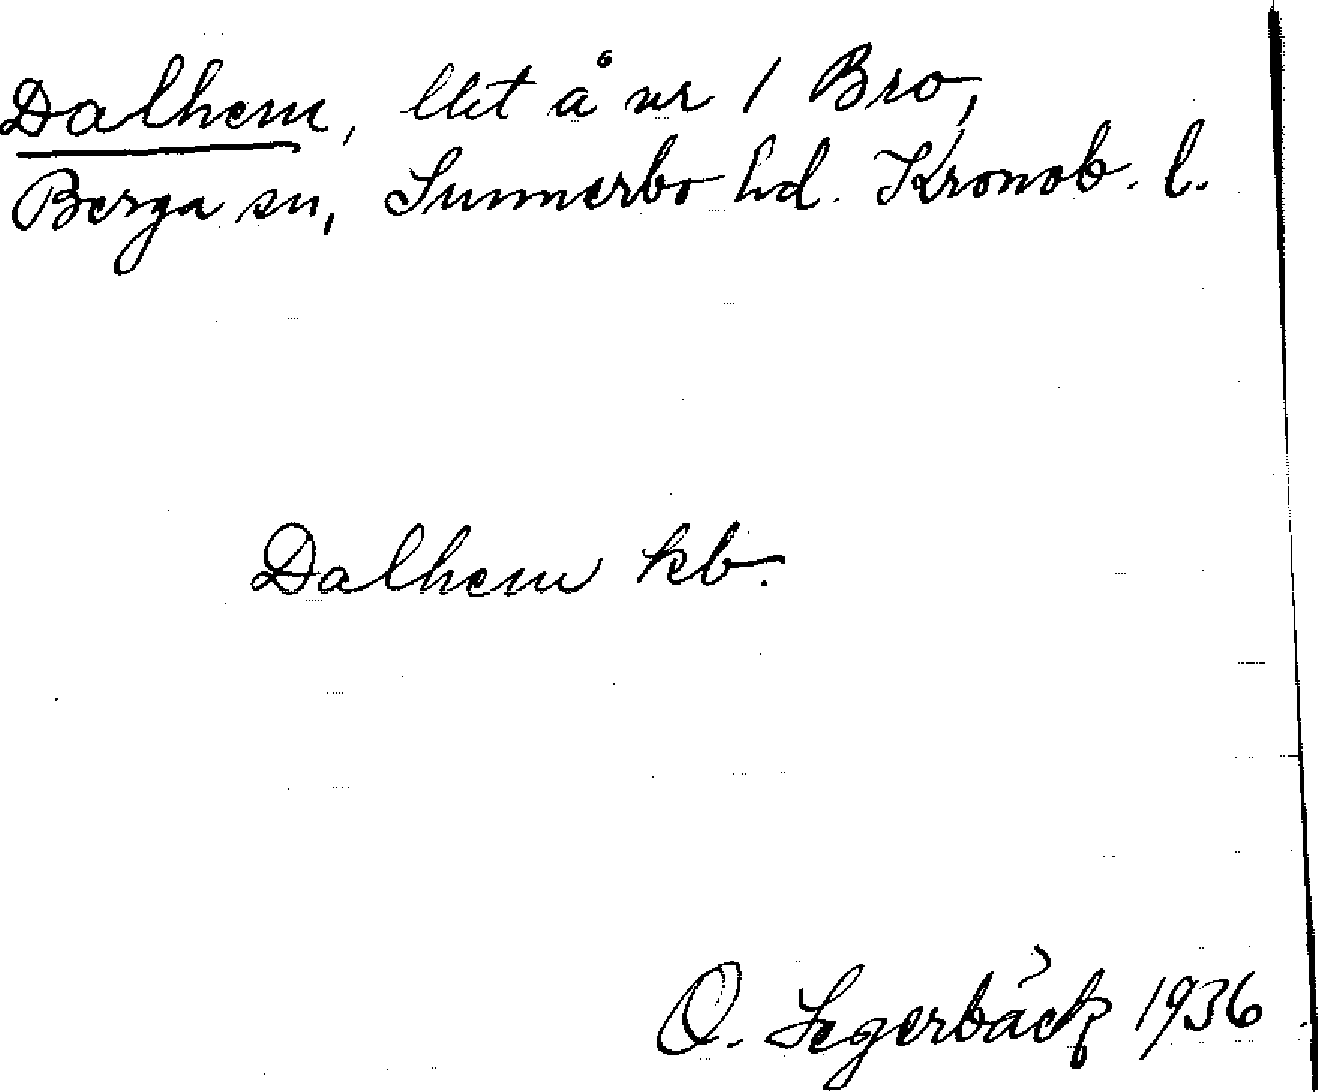 Dalhem, llet å nr 1 Bro,
Berga sn, Sunnerbo hd. Kronob. l.
Dalhem kb.
O. Segerbäck 1936